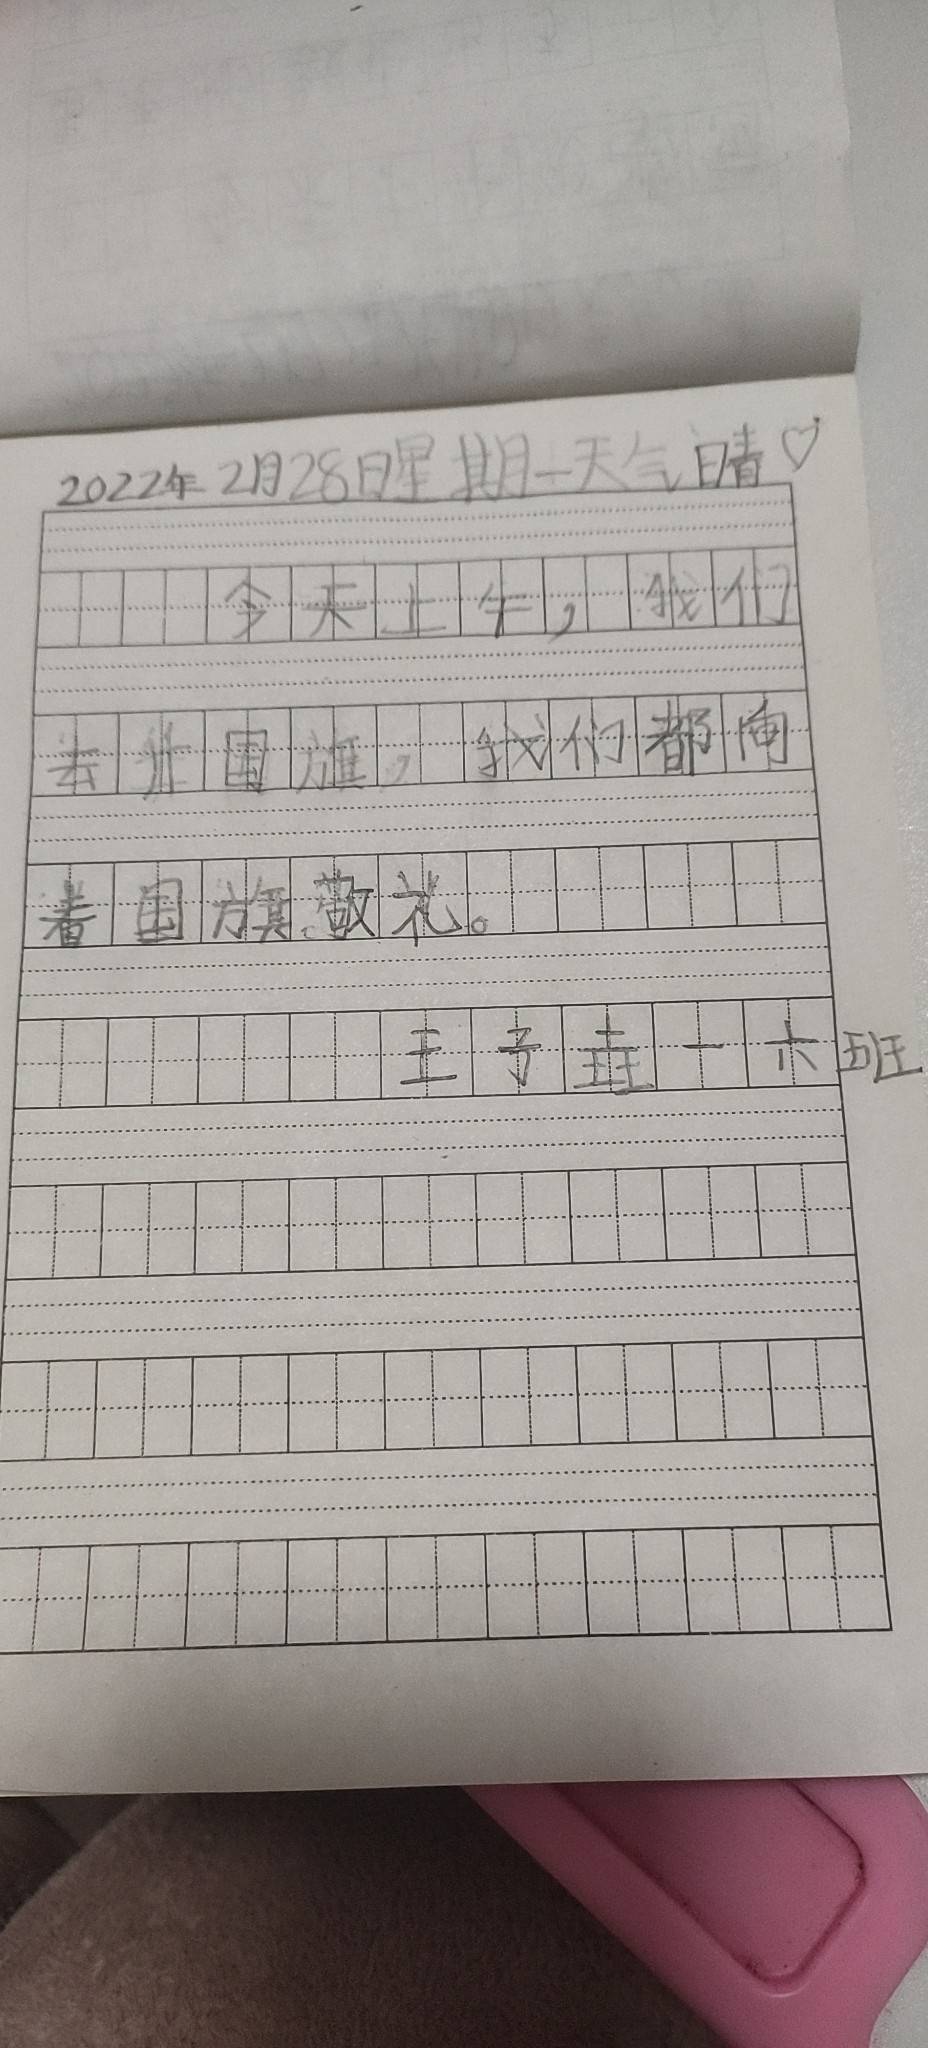 2022年2月28日星期一天气晴♡
今天上午，我们
去升国旗，我们都向
着国旗敬礼。
王子 一六班